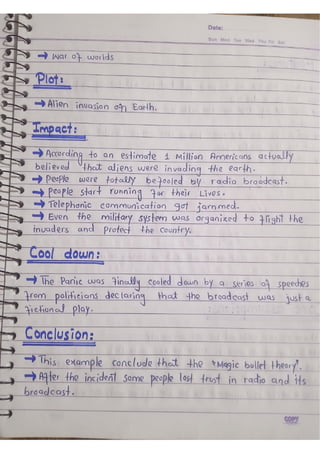 Date:
Sun Mon Tue Wed Thu Fri Sat
→ War of worlds
Plot:
→ Alien invasion on Earth.
Impact:
→ According to an estimate 1 Million Americans actually
believed that aliens were invading the earth.
→ People were totally befooled by radio broadcast.
→ People start running for their Lives.
→ Telephonic communication got jammed.
→ Even the military system was organized to flight the
invaders and protect the country.
Cool down:
→ The Panic was finally cooled down by a series of speeches
from politicians declaring that the broadcast was just a
fictional play.
Conclusion:
→ This example conclude that the "Magic bullet theory".
→ After the incident some people lost trust in radio and its
broadcast.
COPY